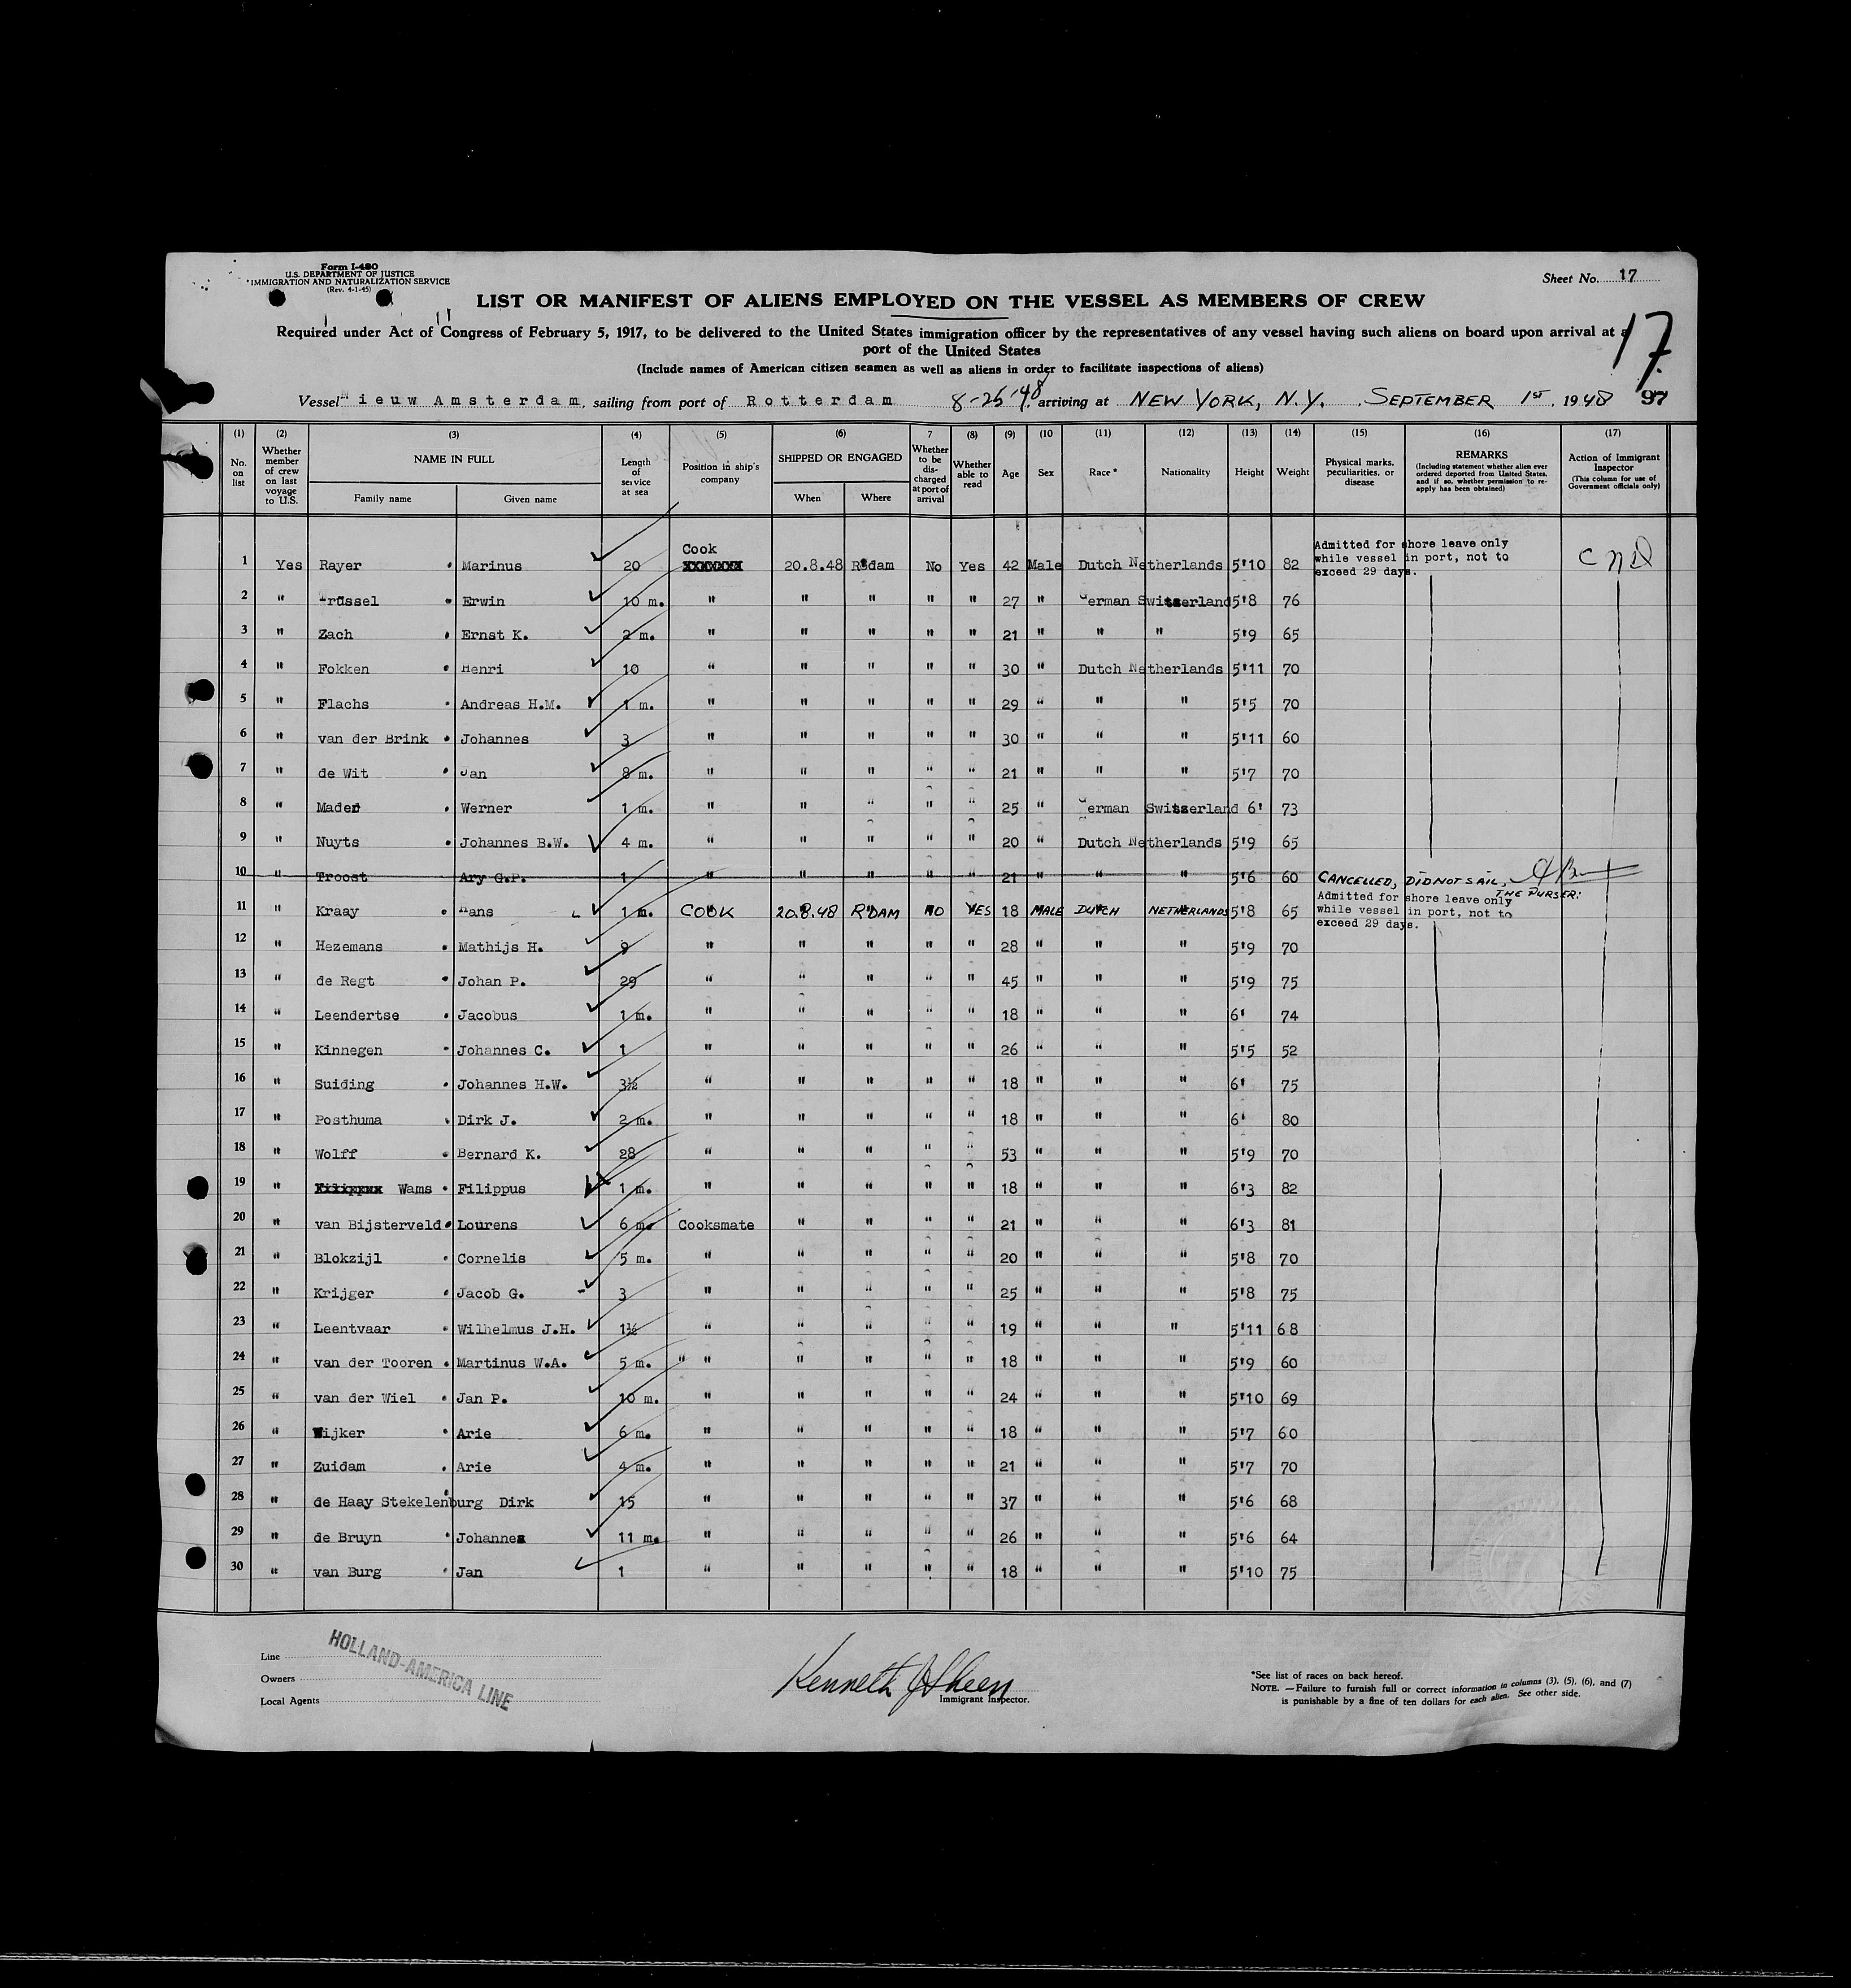 Form I-480
U.S. DEPARTMENT OF JUSTICE
IMMIGRATION AND NATURALIZATION SERVICE
(Rev. 4-1-45)
Sheet No. 17
LIST OR MANIFEST OF ALIENS EMPLOYED ON THE VESSEL AS MEMBERS OF CREW
Required under Act of Congress of February 5, 1917, to be delivered to the United States immigration officer by the representatives of any vessel having such aliens on board upon arrival at a
port of the United States
17
(Include names of American citizen seamen as well as aliens in order to facilitate inspections of aliens)
Vessel Nieuw Amsterdam, sailing from port of Rotterdam 8-25-48 arriving at NEW YORK, N.Y. SEPTEMBER 1st, 1948 97
(1) (2) (3) (4) (5) (6) 7 (8) (9) (10 (11) (12) (13) (14) (15) (16) (17)
No. on list
Whether member of crew on last voyage to U.S.
NAME IN FULL
Family name Given name
Length of service at sea
Position in ship's company
SHIPPED OR ENGAGED
When Where
Whether to be discharged at port of arrival
Whether able to read
Age Sex Race* Nationality Height Weight
Physical marks, peculiarities, or disease
REMARKS
(Including statement whether alien ever ordered deported from United States, and if so, whether permission to re-apply has been obtained)
Action of Immigrant Inspector
(This column for use of Government officials only)
1 Yes Rayer Marinus 20 Cook XXXXXXX 20.8.48 R'dam No Yes 42 Male Dutch Netherlands 5'10 82 Admitted for shore leave only while vessel in port, not to exceed 29 days.
2 " rüssel Erwin 10 m. " " " " " 27 " German Switzerland 5'8 76
3 " Zach Ernst K. 2 m. " " " " " 21 " " " 5'9 65
4 " Fokken Henri 10 " " " " " 30 " Dutch Netherlands 5'11 70
5 " Flachs Andreas H.M. 1 m. " " " " " 29 " " " 5'5 70
6 " van der Brink Johannes 3 " " " " " 30 " " " 5'11 60
7 " de Wit Jan 8 m. " " " " " 21 " " " 5'7 70
8 " Mader Werner 1 m. " " " " " 25 " German Switzerland 6' 73
9 " Nuyts Johannes B.W. 4 m. " " " " " 20 " Dutch Netherlands 5'9 65
10 " Troost Ary G.P. 1 " " " " " 21 " " " 5'6 60 CANCELLED, DID NOT SAIL, THE PURSER:
11 " Kraay Hans 1 m. COOK 20.8.48 R'DAM NO YES 18 MALE DUTCH NETHERLANDS 5'8 65 Admitted for shore leave only while vessel in port, not to exceed 29 days.
12 " Hezemans Mathijs H. 9 " " " " " 28 " " " 5'9 70
13 " de Regt Johan P. 29 " " " " " 45 " " " 5'9 75
14 " Leendertse Jacobus 1 m. " " " " " 18 " " " 6' 74
15 " Kinnegen Johannes C. 1 " " " " " 26 " " " 5'5 52
16 " Suiding Johannes H.W. 3½ " " " " " 18 " " " 6' 75
17 " Posthuma Dirk J. 2 m. " " " " " 18 " " " 6' 80
18 " Wolff Bernard K. 28 " " " " " 53 " " " 5'9 70
19 " Wams Filippus 1 m. " " " " " 18 " " " 6'3 82
20 " van Bijsterveld Lourens 6 m. Cooksmate " " " " 21 " " " 6'3 81
21 " Blokzijl Cornelis 5 m. " " " " " 20 " " " 5'8 70
22 " Krijger Jacob G. 3 " " " " " 25 " " " 5'8 75
23 " Leentvaar Wilhelmus J.H. 1½ " " " " " 19 " " " 5'11 68
24 " van der Tooren Martinus W.A. 5 m. " " " " " " 18 " " " 5'9 60
25 " van der Wiel Jan P. 10 m. " " " " " 24 " " " 5'10 69
26 " Wijker Arie 6 m. " " " " " 18 " " " 5'7 60
27 " Zuidam Arie 4 m. " " " " " 21 " " " 5'7 70
28 " de Haay Stekelenburg Dirk 15 " " " " " 37 " " " 5'6 68
29 " de Bruyn Johannes 11 m. " " " " " 26 " " " 5'6 64
30 " van Burg Jan 1 " " " " " 18 " " " 5'10 75
Line
Owners
Local Agents
HOLLAND-AMERICA LINE
Immigrant Inspector.
*See list of races on back hereof.
NOTE.—Failure to furnish full or correct information in columns (3), (5), (6), and (7)
is punishable by a fine of ten dollars for each alien. See other side.